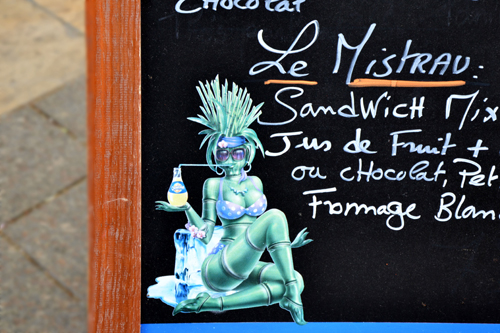 CHocolat
Le Mistrau:
SandWicH Mix
Jus de Fruit +
ou cHocolat, Pet
Fromage Blan